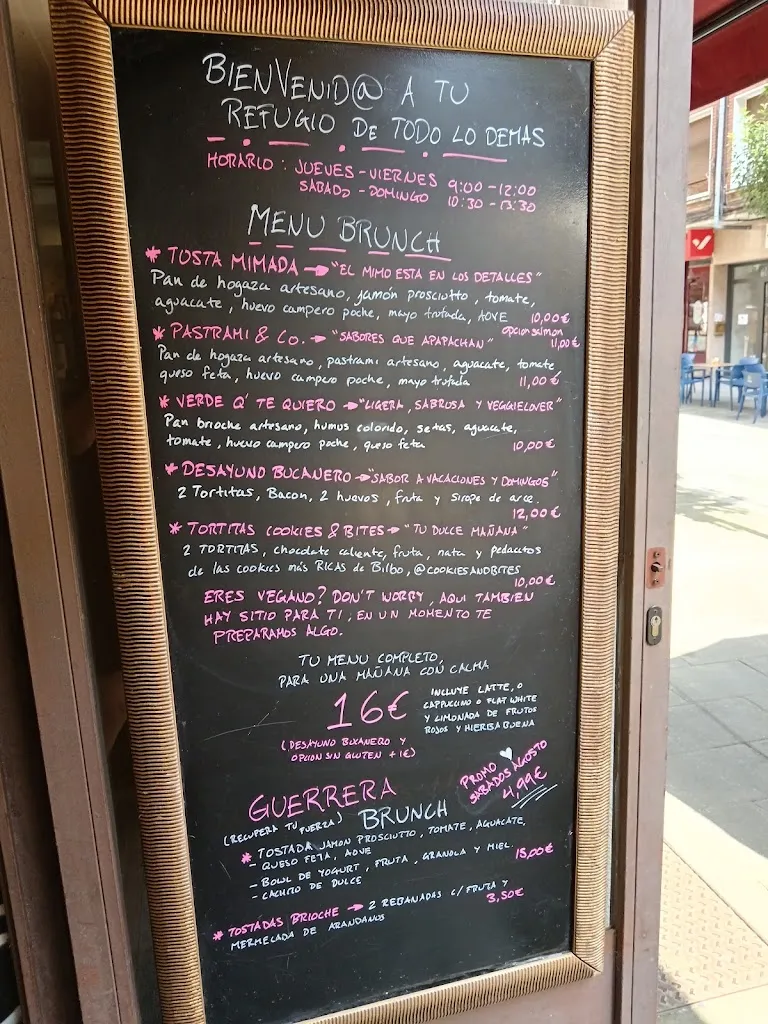 BIENVENID@ A TU
REFUGIO DE TODO LO DEMAS
HORARIO : JUEVES - VIERNES 9:00 - 12:00
SABADO - DOMINGO 10:30 - 13:30
MENU BRUNCH
* TOSTA MIMADA → "EL MIMO ESTA EN LOS DETALLES"
Pan de hogaza artesano, jamón prosciutto, tomate,
aguacate, huevo campero poche, mayo trufada, AOVE 10,00€
opcion salmon 11,00€
* PASTRAMI & CO. → "SABORES QUE APAPACHAN"
Pan de hogaza artesano, pastrami artesano, aguacate, tomate,
queso feta, huevo campero poche, mayo trufada 11,00€
* VERDE Q' TE QUIERO → "LIGERA, SABROSA Y VEGGIELOVER"
Pan brioche artesano, humus colorido, setas, aguacate,
tomate, huevo campero poche, queso feta 10,00€
* DESAYUNO BUCANERO → "SABOR A VACACIONES Y DOMINGOS"
2 Tortitas, Bacon, 2 huevos, fruta y sirope de arce.
12,00€
* TORTITAS COOKIES & BITES → "TU DULCE MAÑANA"
2 TORTITAS, chocolate caliente, fruta, nata y pedacitos
de las cookies más RICAS de Bilbo, @COOKIESANDBITES
10,00€
ERES VEGANO? DON'T WORRY, AQUI TAMBIEN
HAY SITIO PARA TI, EN UN MOMENTO TE
PREPARAMOS ALGO.
TU MENU COMPLETO,
PARA UNA MAÑANA CON CALMA
16€
INCLUYE LATTE, O
CAPPUCCINO O FLAT WHITE
Y LIMONADA DE FRUTOS
ROJOS Y HIERBABUENA
(DESAYUNO BUCANERO Y
OPCION SIN GLUTEN +1€)
PROMO
SABADOS AGOSTO
4,99€
GUERRERA
(RECUPERA TU FUERZA) BRUNCH
* TOSTADA JAMON PROSCIUTTO, TOMATE, AGUACATE,
- QUESO FETA, AOVE
- BOWL DE YOGURT, FRUTA, GRANOLA Y MIEL. 15,00€
- CACHITO DE DULCE
* TOSTADAS BRIOCHE → 2 REBANADAS C/ FRUTA Y
MERMELADA DE ARANDANOS 3,50€